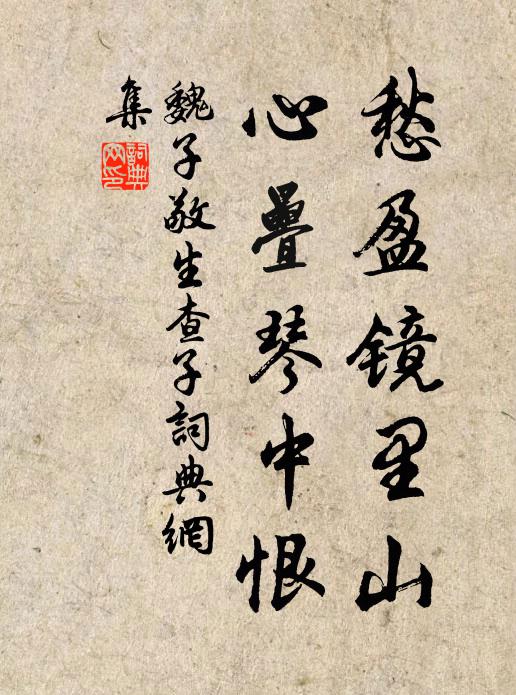 愁盈镜里山
心疊琴中恨
魏子敬生查子詞典網
集
詞典網印